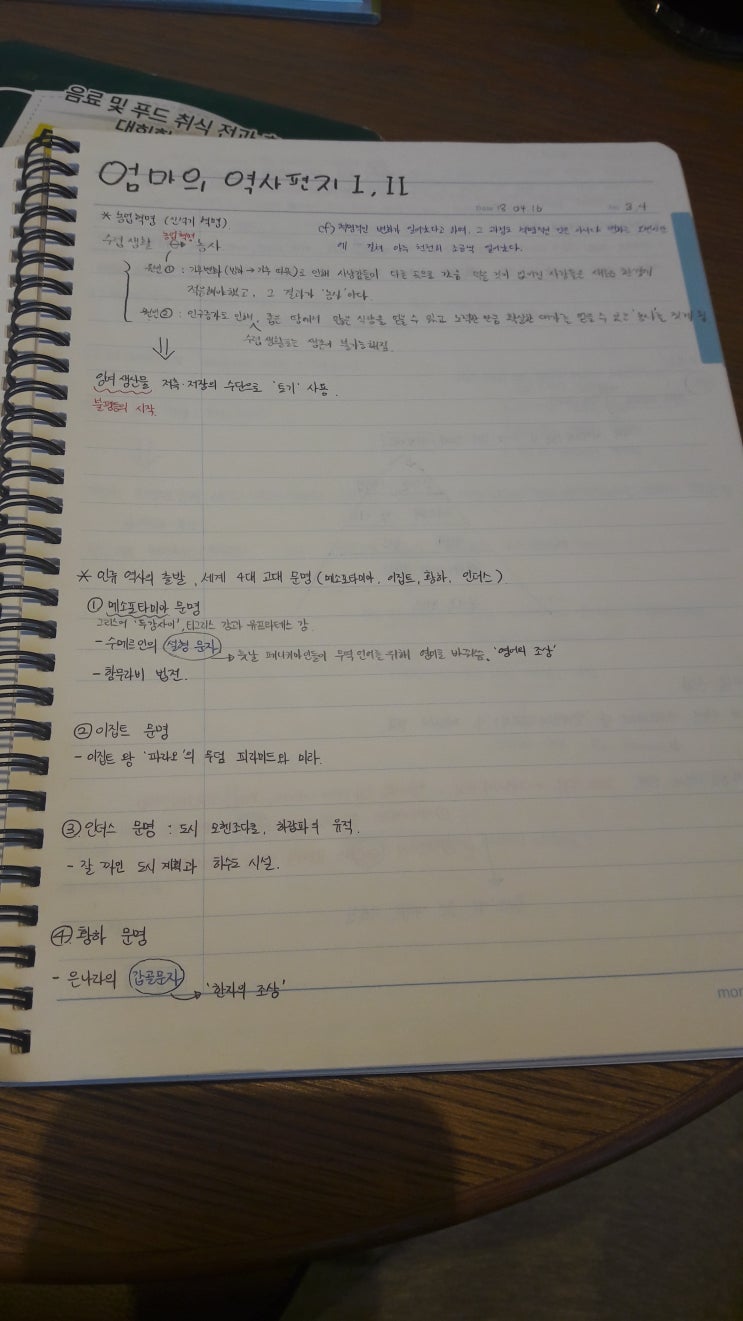 음료 및 푸드 취식 전과 후
엄마의 역사편지 I, II
18 04.16
3.4
* 농업혁명 (신석기 혁명)
수렵 생활 농업혁명 → 농사
cf) 혁명적인 변화가 일어났다고 하여, 그 과정도 혁명적인 것은 아니나 변화는 오랜시간
에 걸쳐 아주 천천히 조금씩 일어났다.
원인① : 기후변화 (빙하 → 기후 따뜻)로 인해 사냥감들이 다른 곳으로 가는 먹을 것이 없어진 사람들은 새로운 환경에
적응해야 했고, 그 결과가 '농사'이다.
원인② : 인구증가로 인해, 좁은 땅에서 많은 식량을 얻을 수 있고 노력한 만큼 확실한 대가를 얻을 수 있는 '농사'를 짓게 됨
수렵 생활로는 생존이 불가능해짐.
⇓
잉여 생산물 저축·저장의 수단으로 '토기' 사용.
불평등의 시작.
* 인류 역사의 출발, 세계 4대 고대 문명 (메소포타미아, 이집트, 황하, 인더스)
① 메소포타미아 문명
그리스어 '두강사이', 티그리스 강과 유프라테스 강
- 수메르인의 설형 문자 → 훗날 페니키아인들이 무역 언어를 위해 영어로 바꿔씀. '영어의 조상'
- 함무라비 법전.
② 이집트 문명
- 이집트 왕 '파라오'의 무덤 피라미드와 미라.
③ 인더스 문명 : 도시 모헨조다로, 하라파의 유적.
- 잘 짜인 도시 계획과 하수도 시설.
④ 황하 문명
- 은나라의 갑골문자 → '한자의 조상'
mor